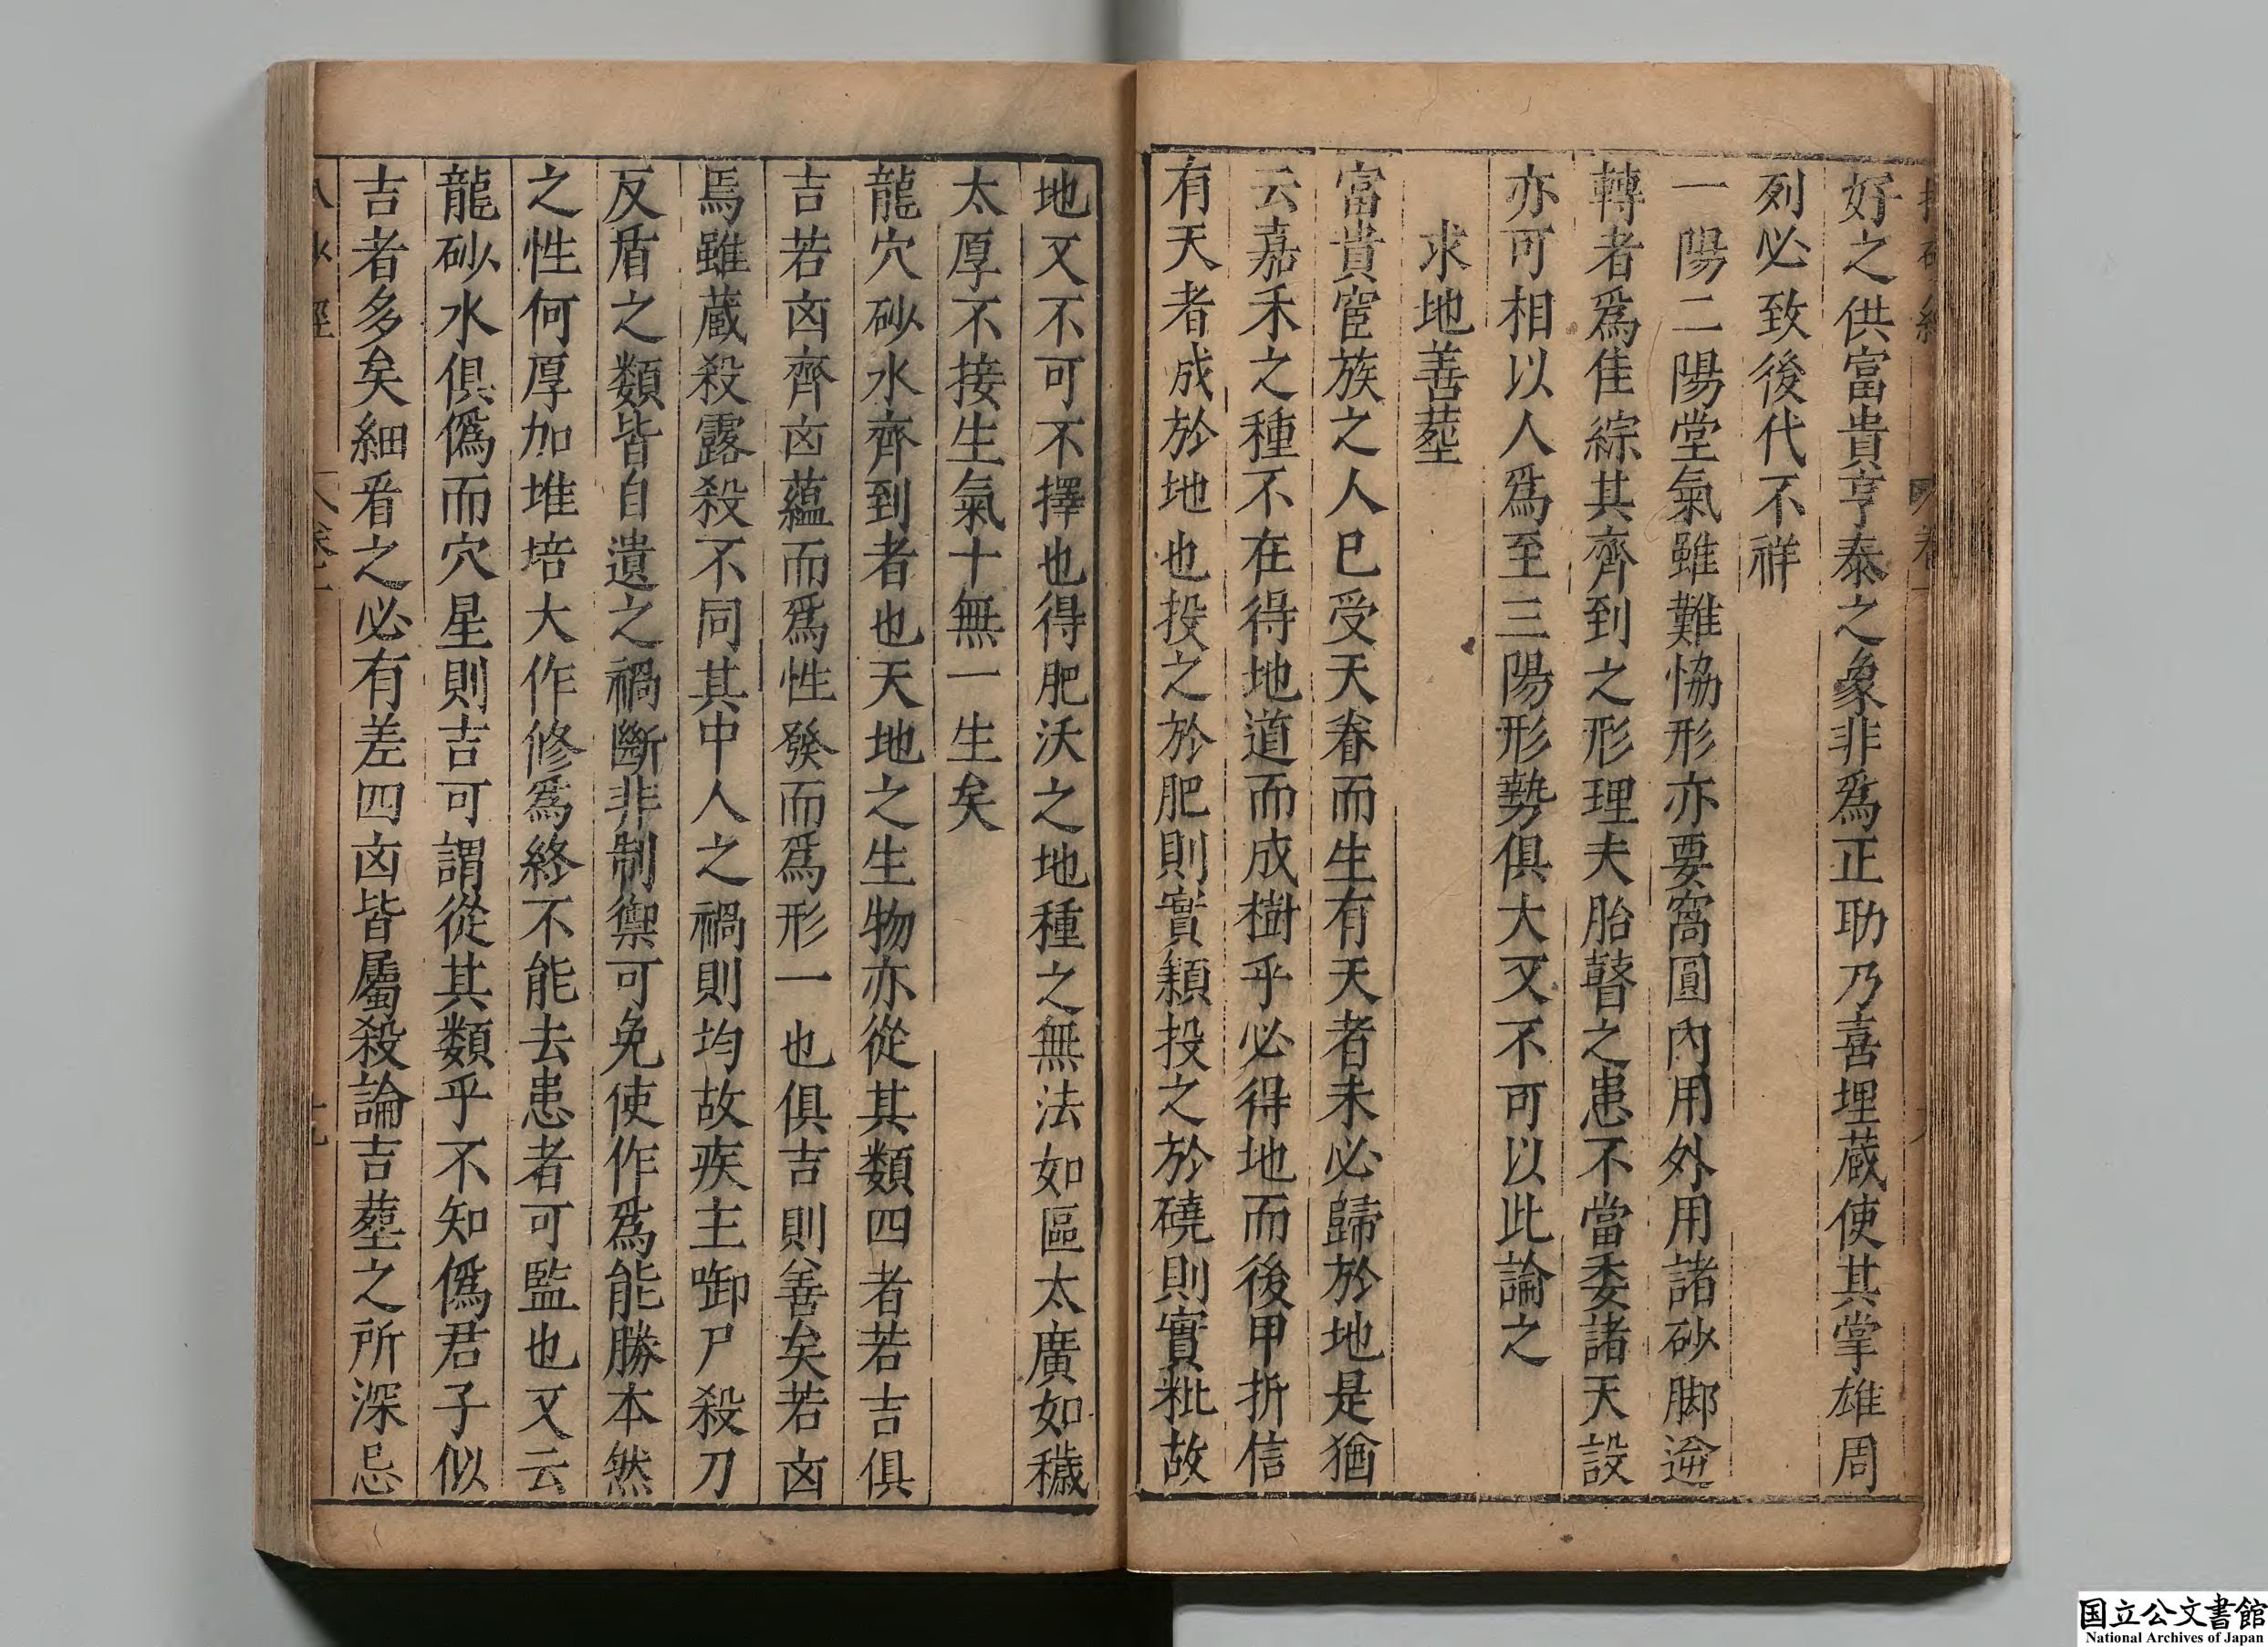 好之供富貴亨泰之象非爲正助乃喜埋蔵使其掌雄周
列必致後代不祥
一陽二陽堂氣雖難恊形亦要窩圓內用外用諸砂脚逆
轉者爲佳綜其齊到之形理夫胎瞽之患不當委諸天設
亦可相以人爲至三陽形勢俱大又不可以此論之
求地善塟
富貴宦族之人已受天眷而生有天者未必歸於地是猶
云嘉禾之種不在得地道而成樹乎必得地而後甲折信
有天者成於地也投之於肥則實穎投之於磽則實粃故
地又不可不擇也得肥沃之地種之無法如區太廣如穢
太厚不接生氣十無一生矣
龍穴砂水齊到者也天地之生物亦從其類四者若吉俱
吉若凶齊凶蘊而爲性發而爲形一也俱吉則善矣若凶
焉雖蔵殺露殺不同其中人之禍則均故疾主啣尸殺刀
反盾之類皆自遺之禍斷非制禦可免使作爲能勝本然
之性何厚加堆培大作修爲終不能去患者可監也又云
龍砂水俱僞而穴星則吉可謂從其類乎不知僞君子似
吉者多矣細看之必有差四凶皆屬殺論吉塟之所深忌
国立公文書館
National Archives of Japan